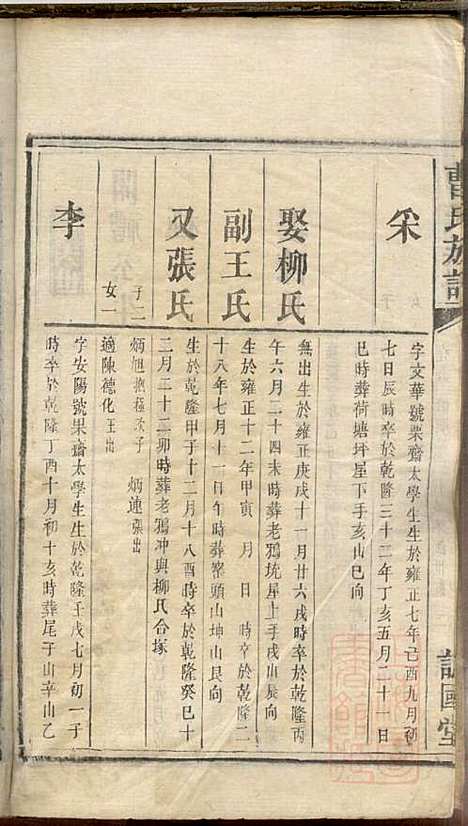 曹氏族譜
訓國堂
采
字文華號栗齋太學生生於雍正七年己酉九月初
七日辰時卒於乾隆三十二年丁亥五月二十一日
巳時葬荷塘坪屋下手亥山巳向
娶柳氏
無出生於雍正庚戌十一月廿六戌時卒於乾隆丙
午六月二十四未時葬老鴉坑屋上手戌山辰向
副王氏
生於雍正十二年甲寅 月 日 時卒於乾隆二
十八年七月十一日午時葬寨頭山坤山艮向
又張氏
生於乾隆甲子十二月十八酉時卒於乾隆癸巳十
二月二十二卯時葬老鴉冲與柳氏合塚
子二
炳旭撫極次子 炳連張出
女一
適陳德化王出
李
字安陽號果齋太學生生於乾隆壬戌七月初一子
時卒於乾隆丁酉十月初十亥時葬尾子山辛山乙